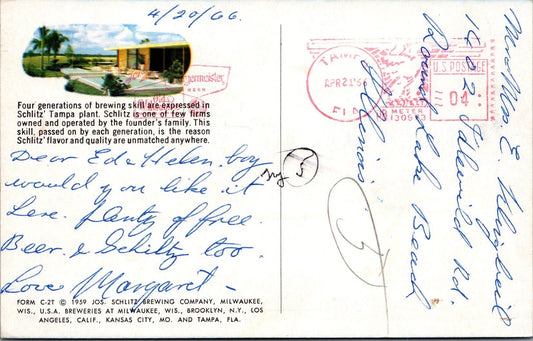 4/20/66.
Four generations of brewing skill are expressed in
Schlitz' Tampa plant. Schlitz is one of few firms
owned and operated by the founder's family. This
skill, passed on by each generation, is the reason
Schlitz' flavor and quality are unmatched anywhere.
Dear Ed & Helen, boy
would you like it
here. Plenty of free.
Beer. & Schlitz too.
Love Margaret –
FORM C-2T © 1959 JOS. SCHLITZ BREWING COMPANY, MILWAUKEE,
WIS., U.S.A. BREWERIES AT MILWAUKEE, WIS., BROOKLYN, N.Y., LOS
ANGELES, CALIF., KANSAS CITY, MO. AND TAMPA, FLA.
TAMPA
APR 21
FLA
U.S. POSTAGE
04
METER
Mr & Mrs E.
1402 Idlewild Rd.
Round Lake Beach
Illinois
5